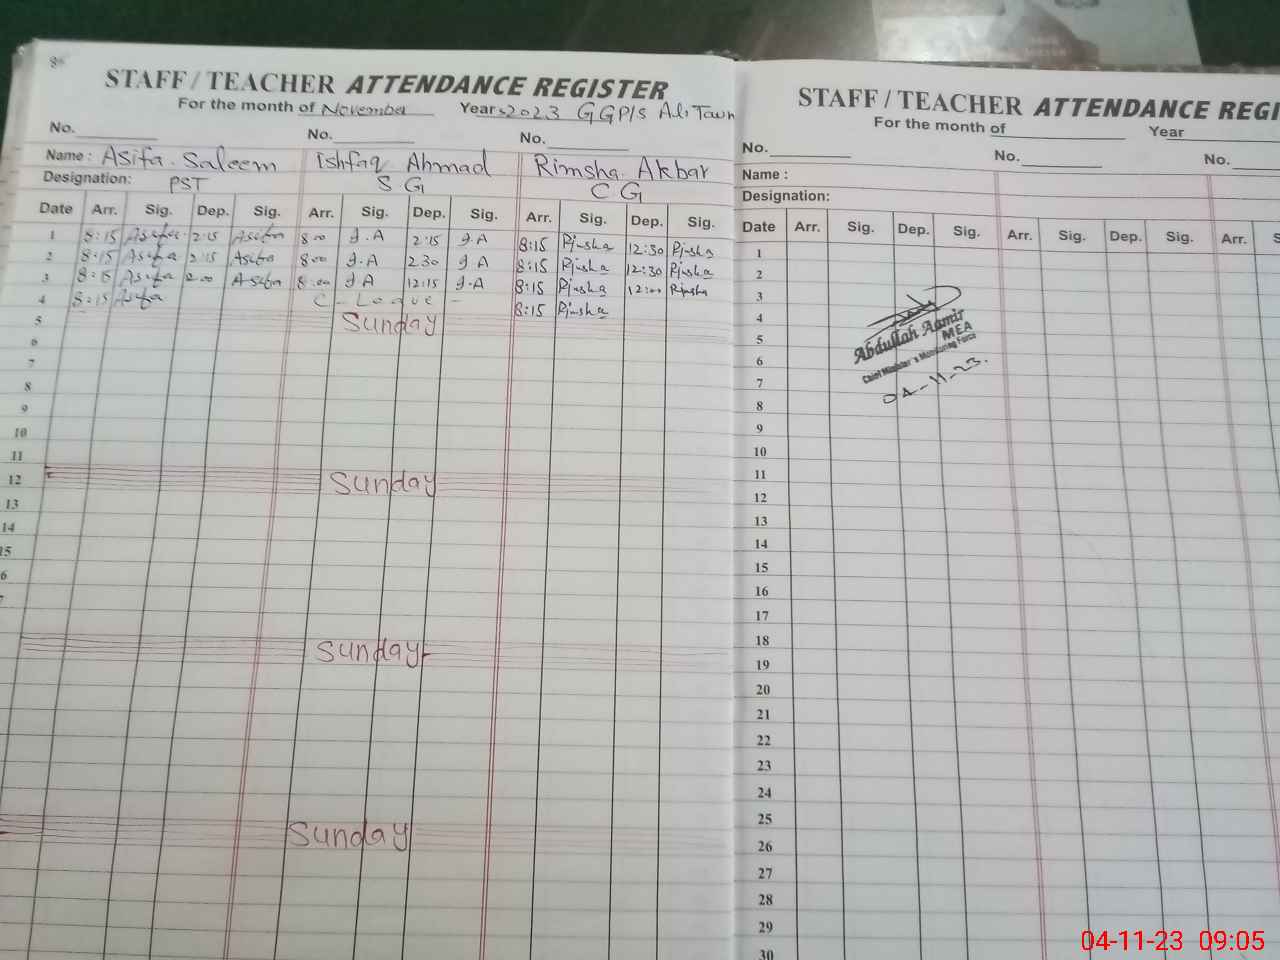 STAFF / TEACHER ATTENDANCE REGISTER
For the month of November Year 2023 GGP/S Ali Town
No. No. No.
Name : Asifa Saleem Ishfaq Ahmad Rimsha Akbar
Designation: PST S G C G
Date Arr. Sig. Dep. Sig. Arr. Sig. Dep. Sig. Arr. Sig. Dep. Sig.
1 8:15 Asifa 2:15 Asifa 8:00 I.A 2:15 I.A 8:15 Rimsha 12:30 Rimsha
2 8:15 Asifa 2:15 Asifa 8:00 I.A 2:30 I.A 8:15 Rimsha 12:30 Rimsha
3 8:15 Asifa 2:00 Asifa 8:00 I A 12:15 I.A 8:15 Rimsha 12:00 Rimsha
4 8:15 Asifa C - Leave - 8:15 Rimsha
5 Sunday
6
7
8
9
10
11
12 Sunday
13
14
15
6
7
Sunday
Sunday
STAFF / TEACHER ATTENDANCE REGI
For the month of Year
No. No. No.
Name :
Designation:
Date Arr. Sig. Dep. Sig. Arr. Sig. Dep. Sig. Arr. S
1
2
3
4
5
6
7
8
9
10
11
12
13
14
15
16
17
18
19
20
21
22
23
24
25
26
27
28
29
30
Abdullah Aamir
MEA
Chief Minister's Monitoring Force
04-11-23.
04-11-23 09:05